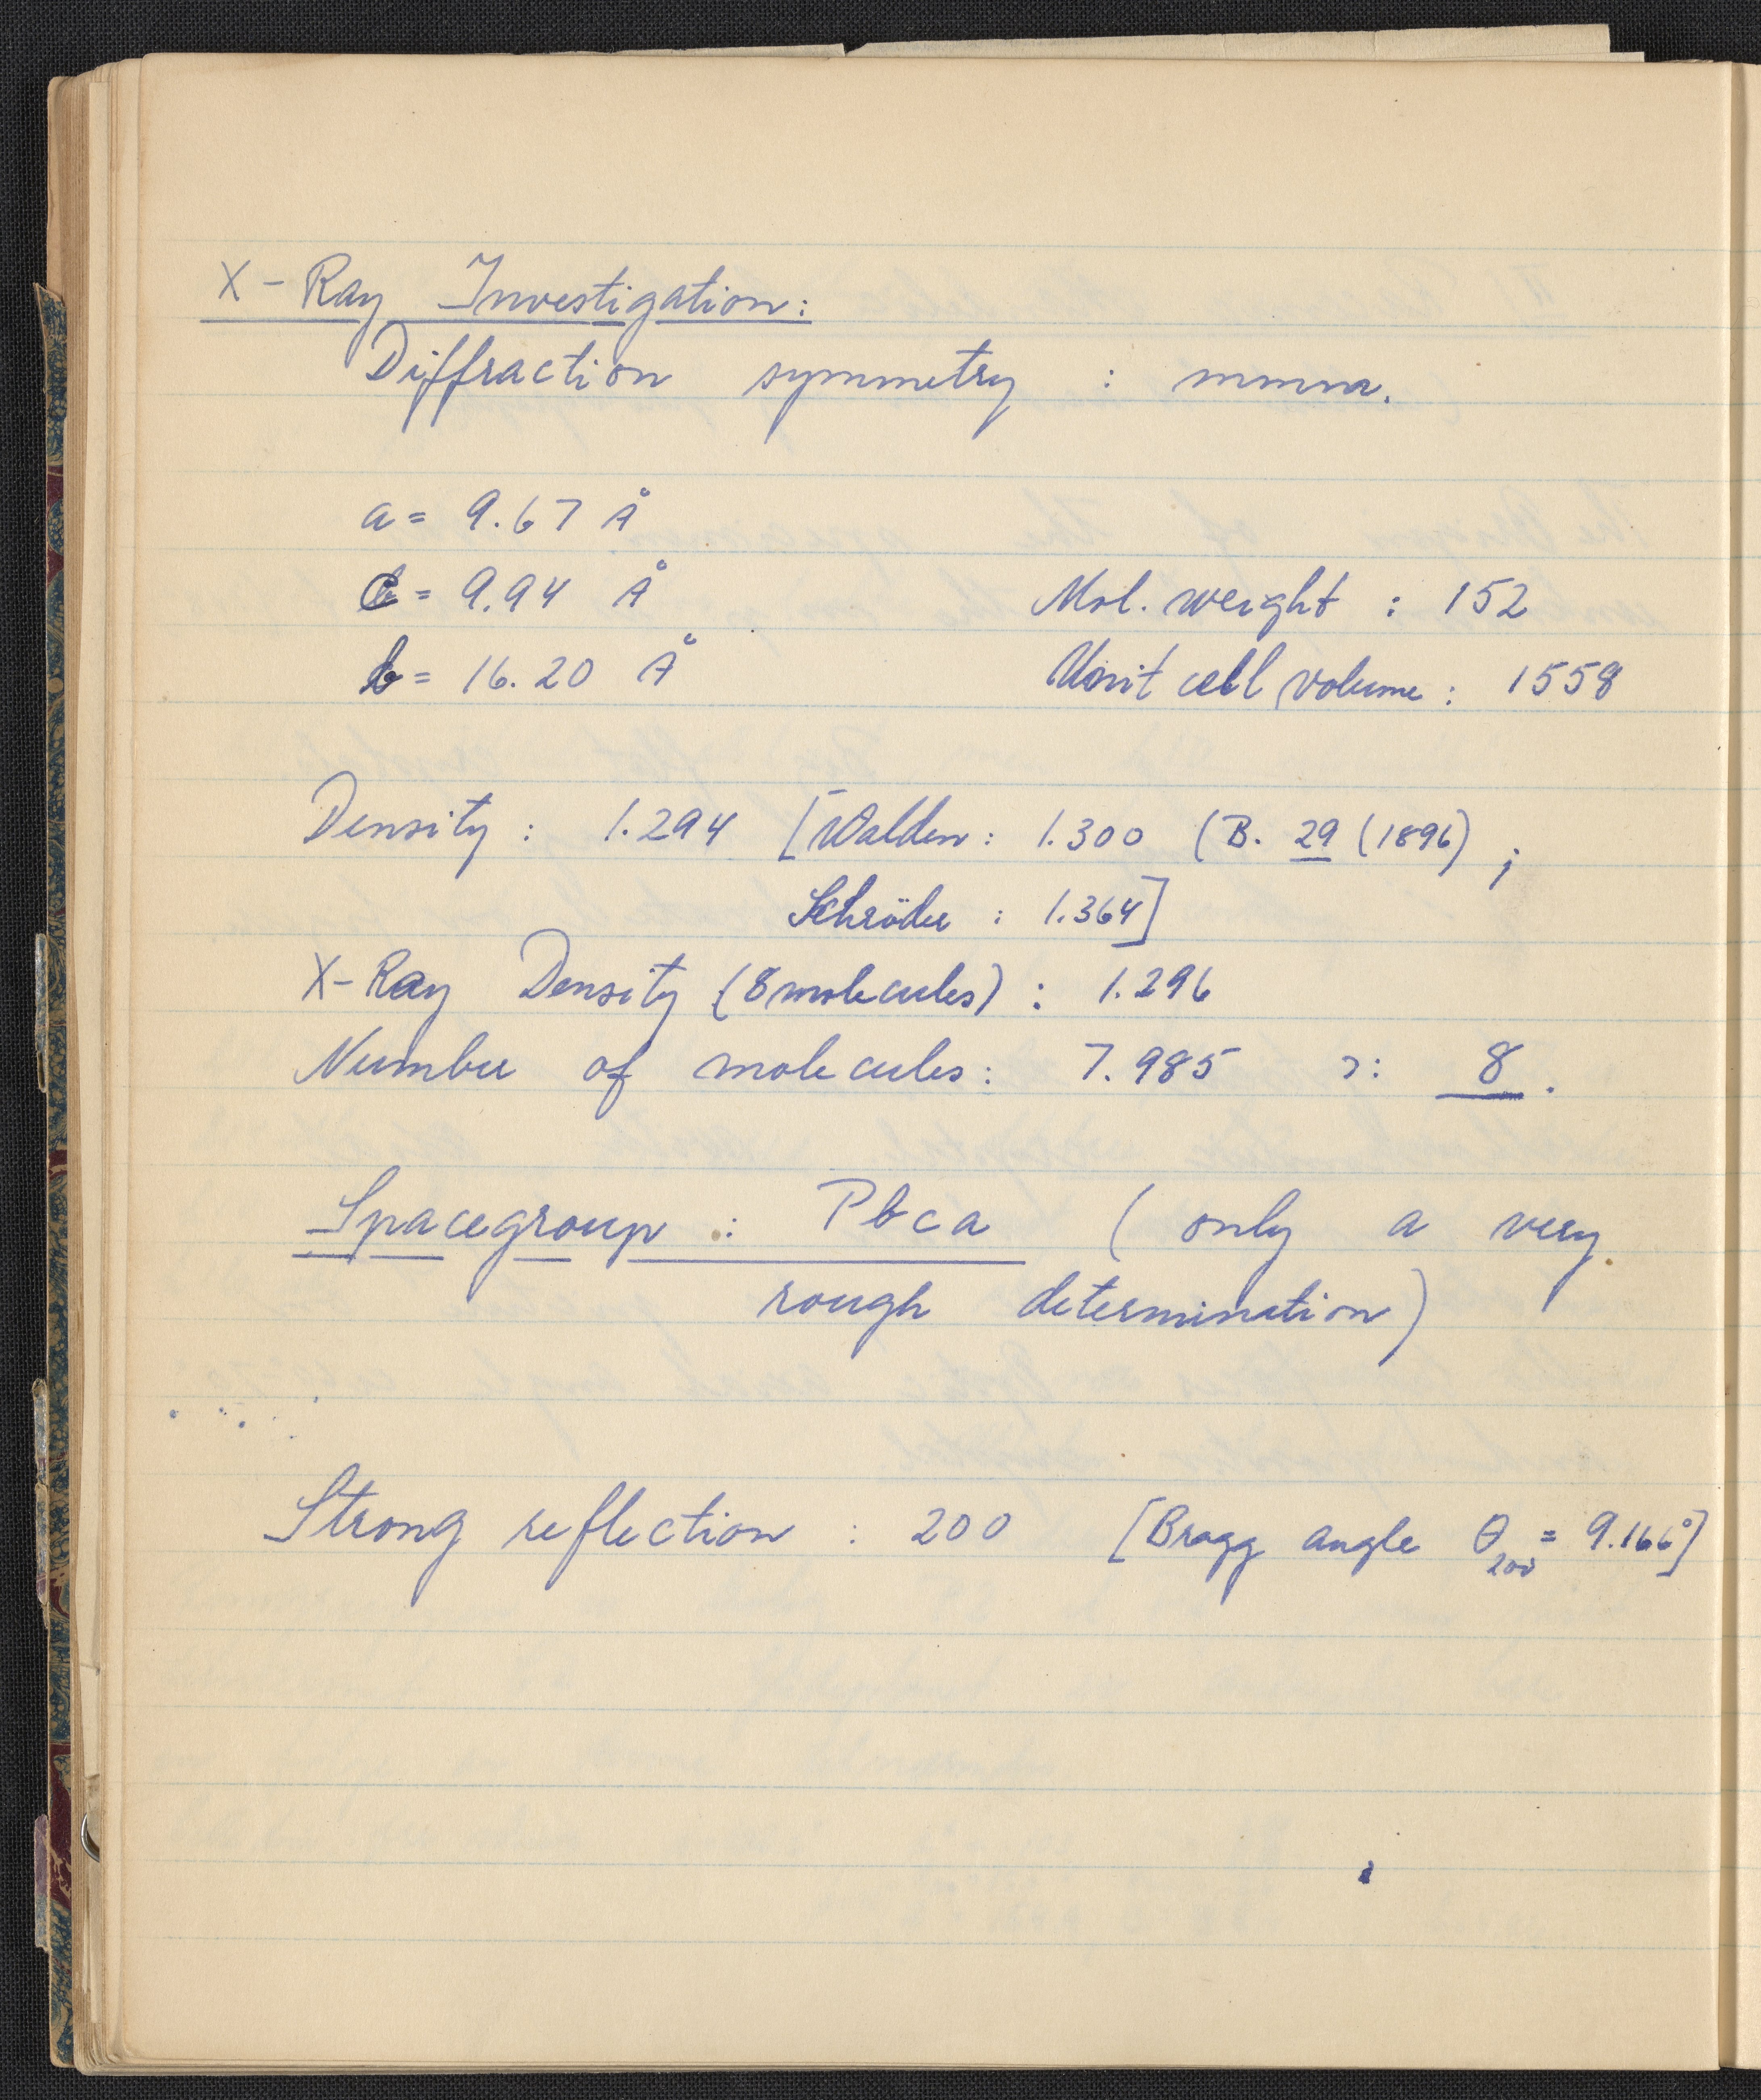 X-Ray Investigation:
Diffraction symmetry : mmm.
a = 9.67 Å
c = 9.94 Å
Mol. weight : 152
b = 16.20 Å
Unit cell volume : 1558
Density : 1.294 [Walden : 1.300 (B. 29 (1896) ;
Schröder : 1.364]
X-Ray Density (8 molecules) : 1.296
Number of molecules : 7.985 ɔ: 8.
Spacegroup : Pbca (only a very
rough determination)
Strong reflection : 200 [Bragg angle θ₂₀₀ = 9.166°]